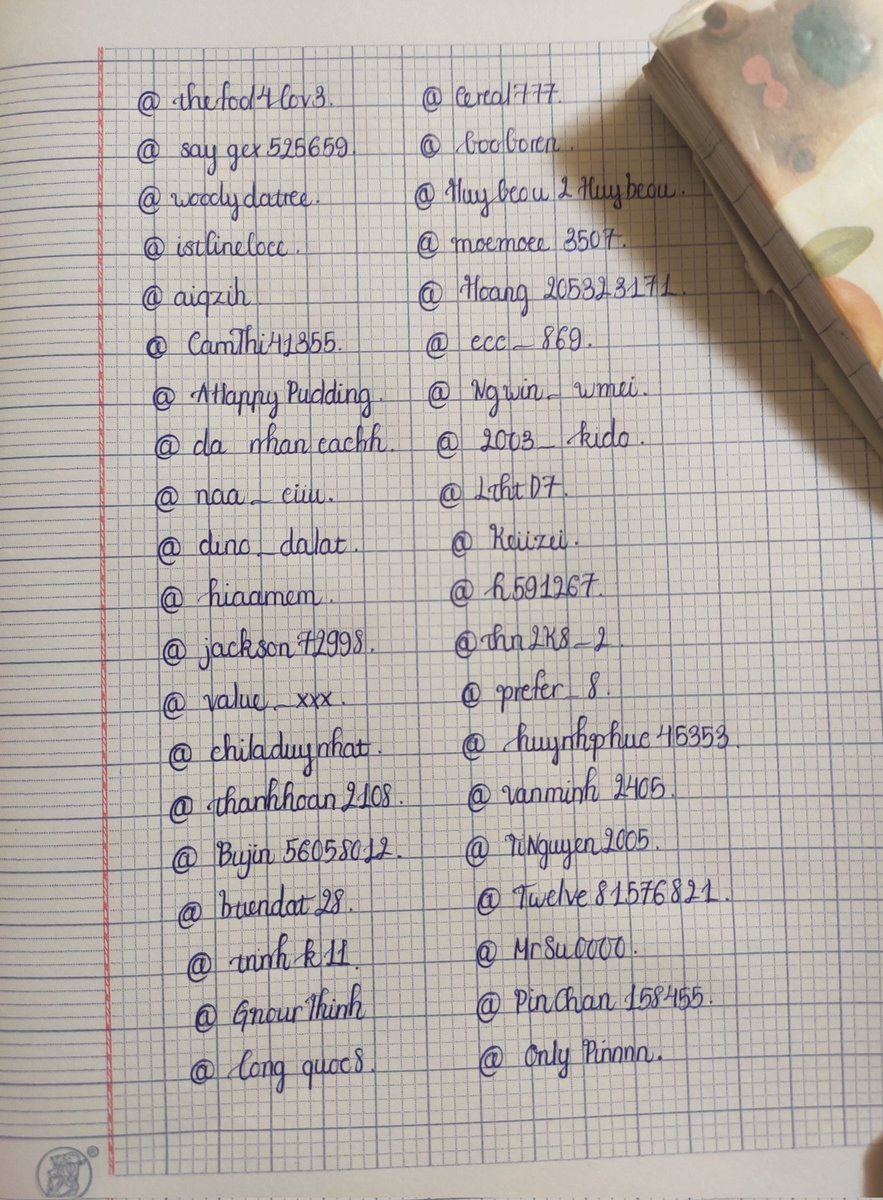 @ thefool4lov3.
@ say gex 525659.
@ woodydatree.
@ istlinelocc.
@ aiqzih
@ CamThi41355.
@ AHappy Pudding.
@ da nhan cachh.
@ naa_ciiu.
@ dino_dalat.
@ hiaamem.
@ jackson72998.
@ value_xxx.
@ chiladuynhat.
@ thanhhoan2108.
@ Bujin 56058012.
@ buendat 28.
@ trinh k11.
@ GnourThinh
@ long quoc8.
@ Cereal777.
@ booboren.
@ Huy beou 2 Huy beou.
@ moemoee 3507.
@ Hoang 205323171.
@ ecc_869.
@ Ngwin_wmei.
@ 2003_kido.
@ LthtD7.
@ Keiizei.
@ h591267.
@ thn2K8_2
@ prefer_8.
@ huynhphuc 45353.
@ vanminh 2405.
@ TiNguyen2005.
@ Twelve 81576821.
@ MrSu0000.
@ PinChan 158455.
@ Only Pinnnn.